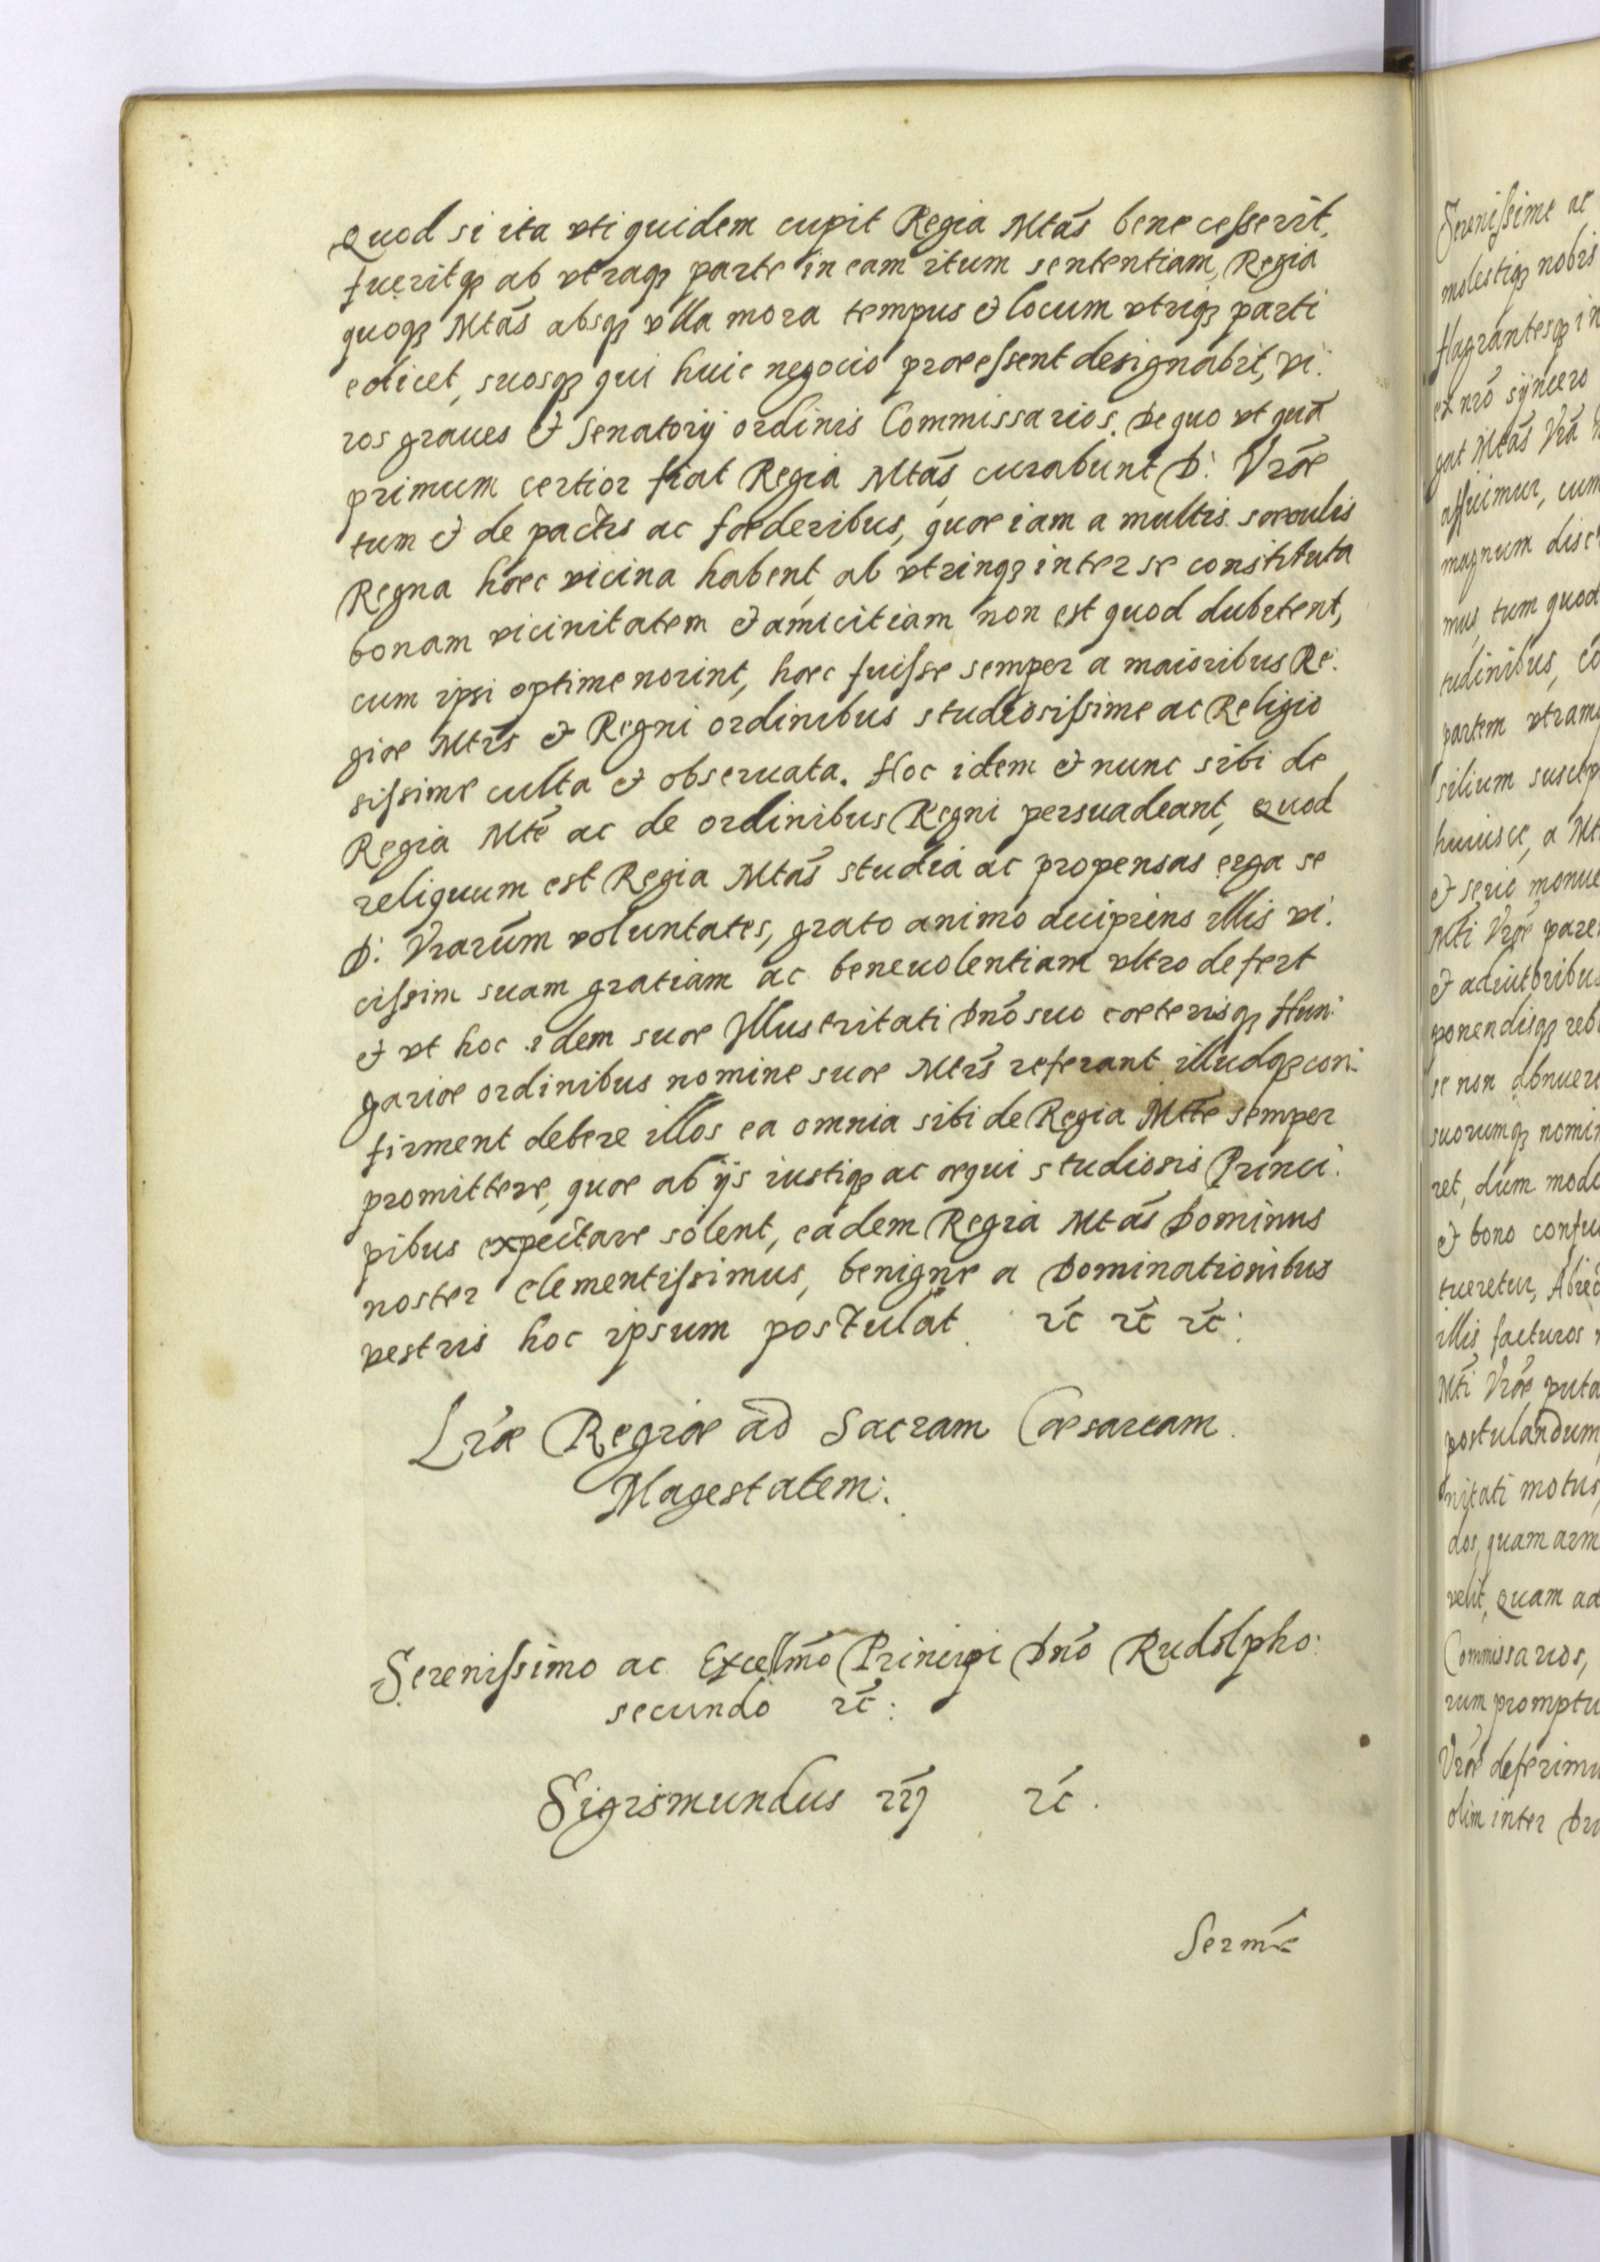 Quod si ita vti quidem cupit Regia Mtás bene cesserit,
fueritq3 ab vtraq3 parte in eam itum sententiam, Regia
quoq3 Mtás absq3 vlla mora tempus & locum vtriq3 parti
edicet, suosq3 qui huic negocio præessent designabit, vi:
ros graues & Senatorij ordinis Commissarios. De quo vt quã
primum certior fiat Regia Mtás, curabunt D: Vræ
tum & de pactis ac fœderibus, quæ iam a multis sæculis
Regna hæc vicina habent, ab vtrinq3 inter se constituta
bonam vicinitatem & amicitiam non est quod dubitent,
cum ipsi optime norint, hæc fuisse semper a maioribus Re:
giæ Mtis & Regni ordinibus studiosissime ac Religio
sissime culta & obseruata. Hoc idem & nunc sibi de
Regia Mte ac de ordinibus Regni persuadeant, Quod
reliquum est Regia Mtás studia ac propensas erga se
D: Vrarum voluntates, grato animo accipiens illis vi:
cissim suam gratiam ac beneuolentiam vltro defert
& vt hoc idem suæ Illustritati Dnõ suo cæterisq3 Hun:
gariæ ordinibus nomine suæ Mtis referant illudq3 con:
firment debere illos ea omnia sibi de Regia Mtte semper
promittere, quæ ab ijs iustiq3 ac æqui studiosis Princi:
pibus expectare solent, eadem Regia Mtás Dominus
noster clementissimus, benigne a Dominationibus
vestris hoc ipsum postulat. rc̃ rc̃ rc̃:
Lræ Regiæ ad Sacram Cæsaream
Magestatem:
Serenissimo ac Excellmõ Principi Dnõ Rudolpho:
secundo rc̃:
Sigismundus iij rc̃.
Sermẽ
Serenissime ac
molestiq3 nobis
flagrantesq3 in
ex nrõ syncero
gat Mtás Vrã
afficimur, cum
magnum disc
mus, tum quod
tudinibus, co
partem vtram
silium suscep
huiusce, a Mt
& serio monue
Mti Vræ pare
& adiutoribus
ponendisq3 reb
se non abnuere
suorumq3 nomin
ret, dum modo
& bono confu
tueretur,
illis facturos
Mti Vræ puta
postulandum,
nitati motus,
dos, quam arm
velit, Quam ad
Commissarios,
rum promptu
Vræ deferimu
olim inter